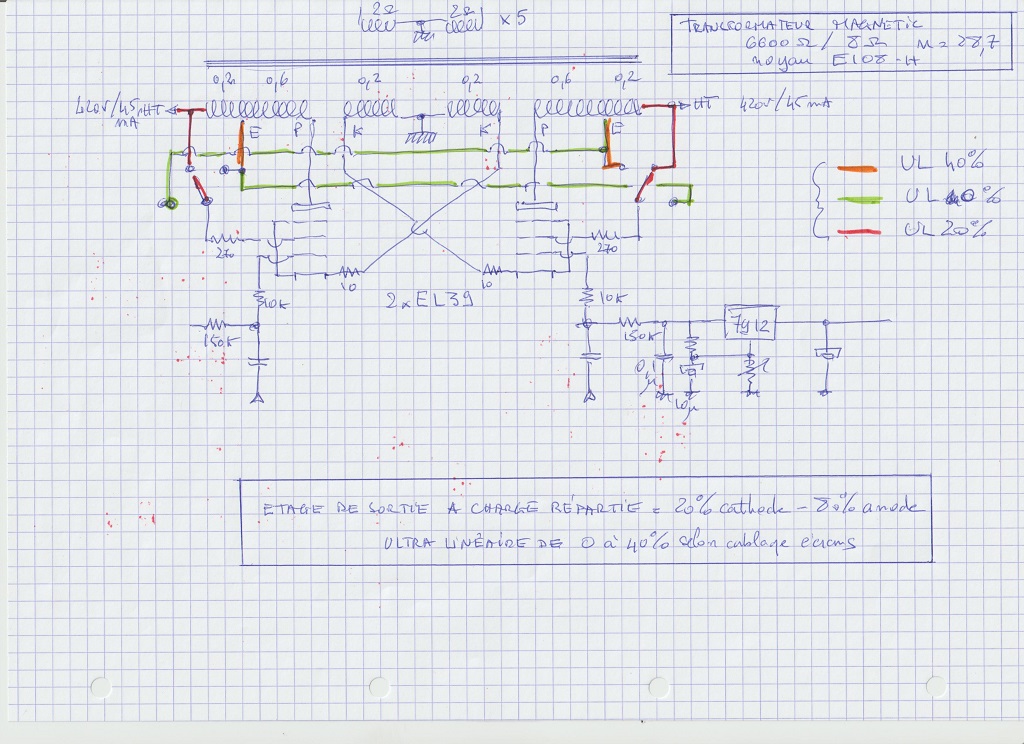 2Ω 2Ω x 5
TRANSFORMATEUR MAGNETIC
6600 Ω / 8 Ω n = 28,7
noyau E108-H
0,2 0,6 0,2 0,2 0,6 0,2
420V/45 mA HT HT 420V/45 mA
E P K K P E
UL 40%
UL 0%
UL 20%
270 270
10 10
2 x EL39
10K 10K
150K 150K 7912
0,1 µ
10µ
ETAGE DE SORTIE A CHARGE RÉPARTIE = 20% cathode - 80% anode
ULTRA LINÉAIRE DE 0 à 40% selon cablage écrans